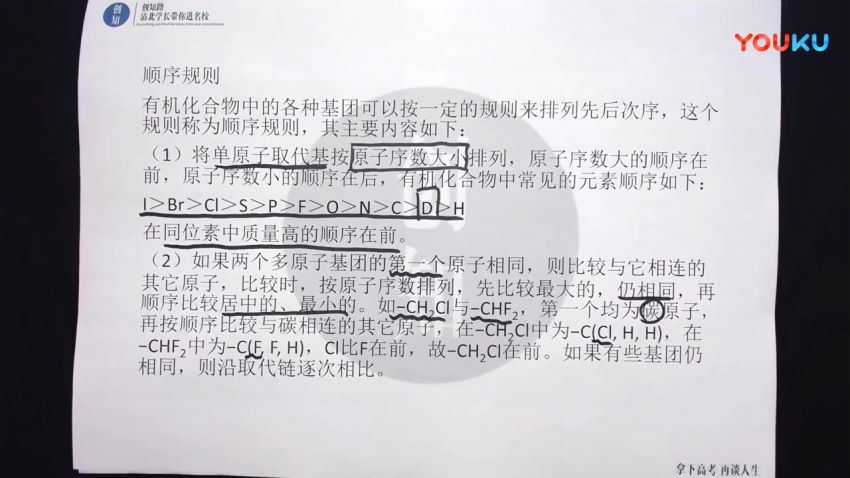 创知
创知路
清北学长带你进名校
YOUKU
顺序规则
有机化合物中的各种基团可以按一定的规则来排列先后次序，这个
规则称为顺序规则，其主要内容如下：
（1）将单原子取代基按原子序数大小排列，原子序数大的顺序在
前，原子序数小的顺序在后，有机化合物中常见的元素顺序如下：
I＞Br＞Cl＞S＞P＞F＞O＞N＞C＞D＞H
在同位素中质量高的顺序在前。
（2）如果两个多原子基团的第一个原子相同，则比较与它相连的
其它原子，比较时，按原子序数排列，先比较最大的，仍相同，再
顺序比较居中的、最小的。如−CH₂Cl与−CHF₂，第一个均为碳原子，
再按顺序比较与碳相连的其它原子，在−CH₂Cl中为−C(Cl, H, H)，在
−CHF₂中为−C(F, F, H)，Cl比F在前，故−CH₂Cl在前。如果有些基团仍
相同，则沿取代链逐次相比。
拿下高考 再谈人生